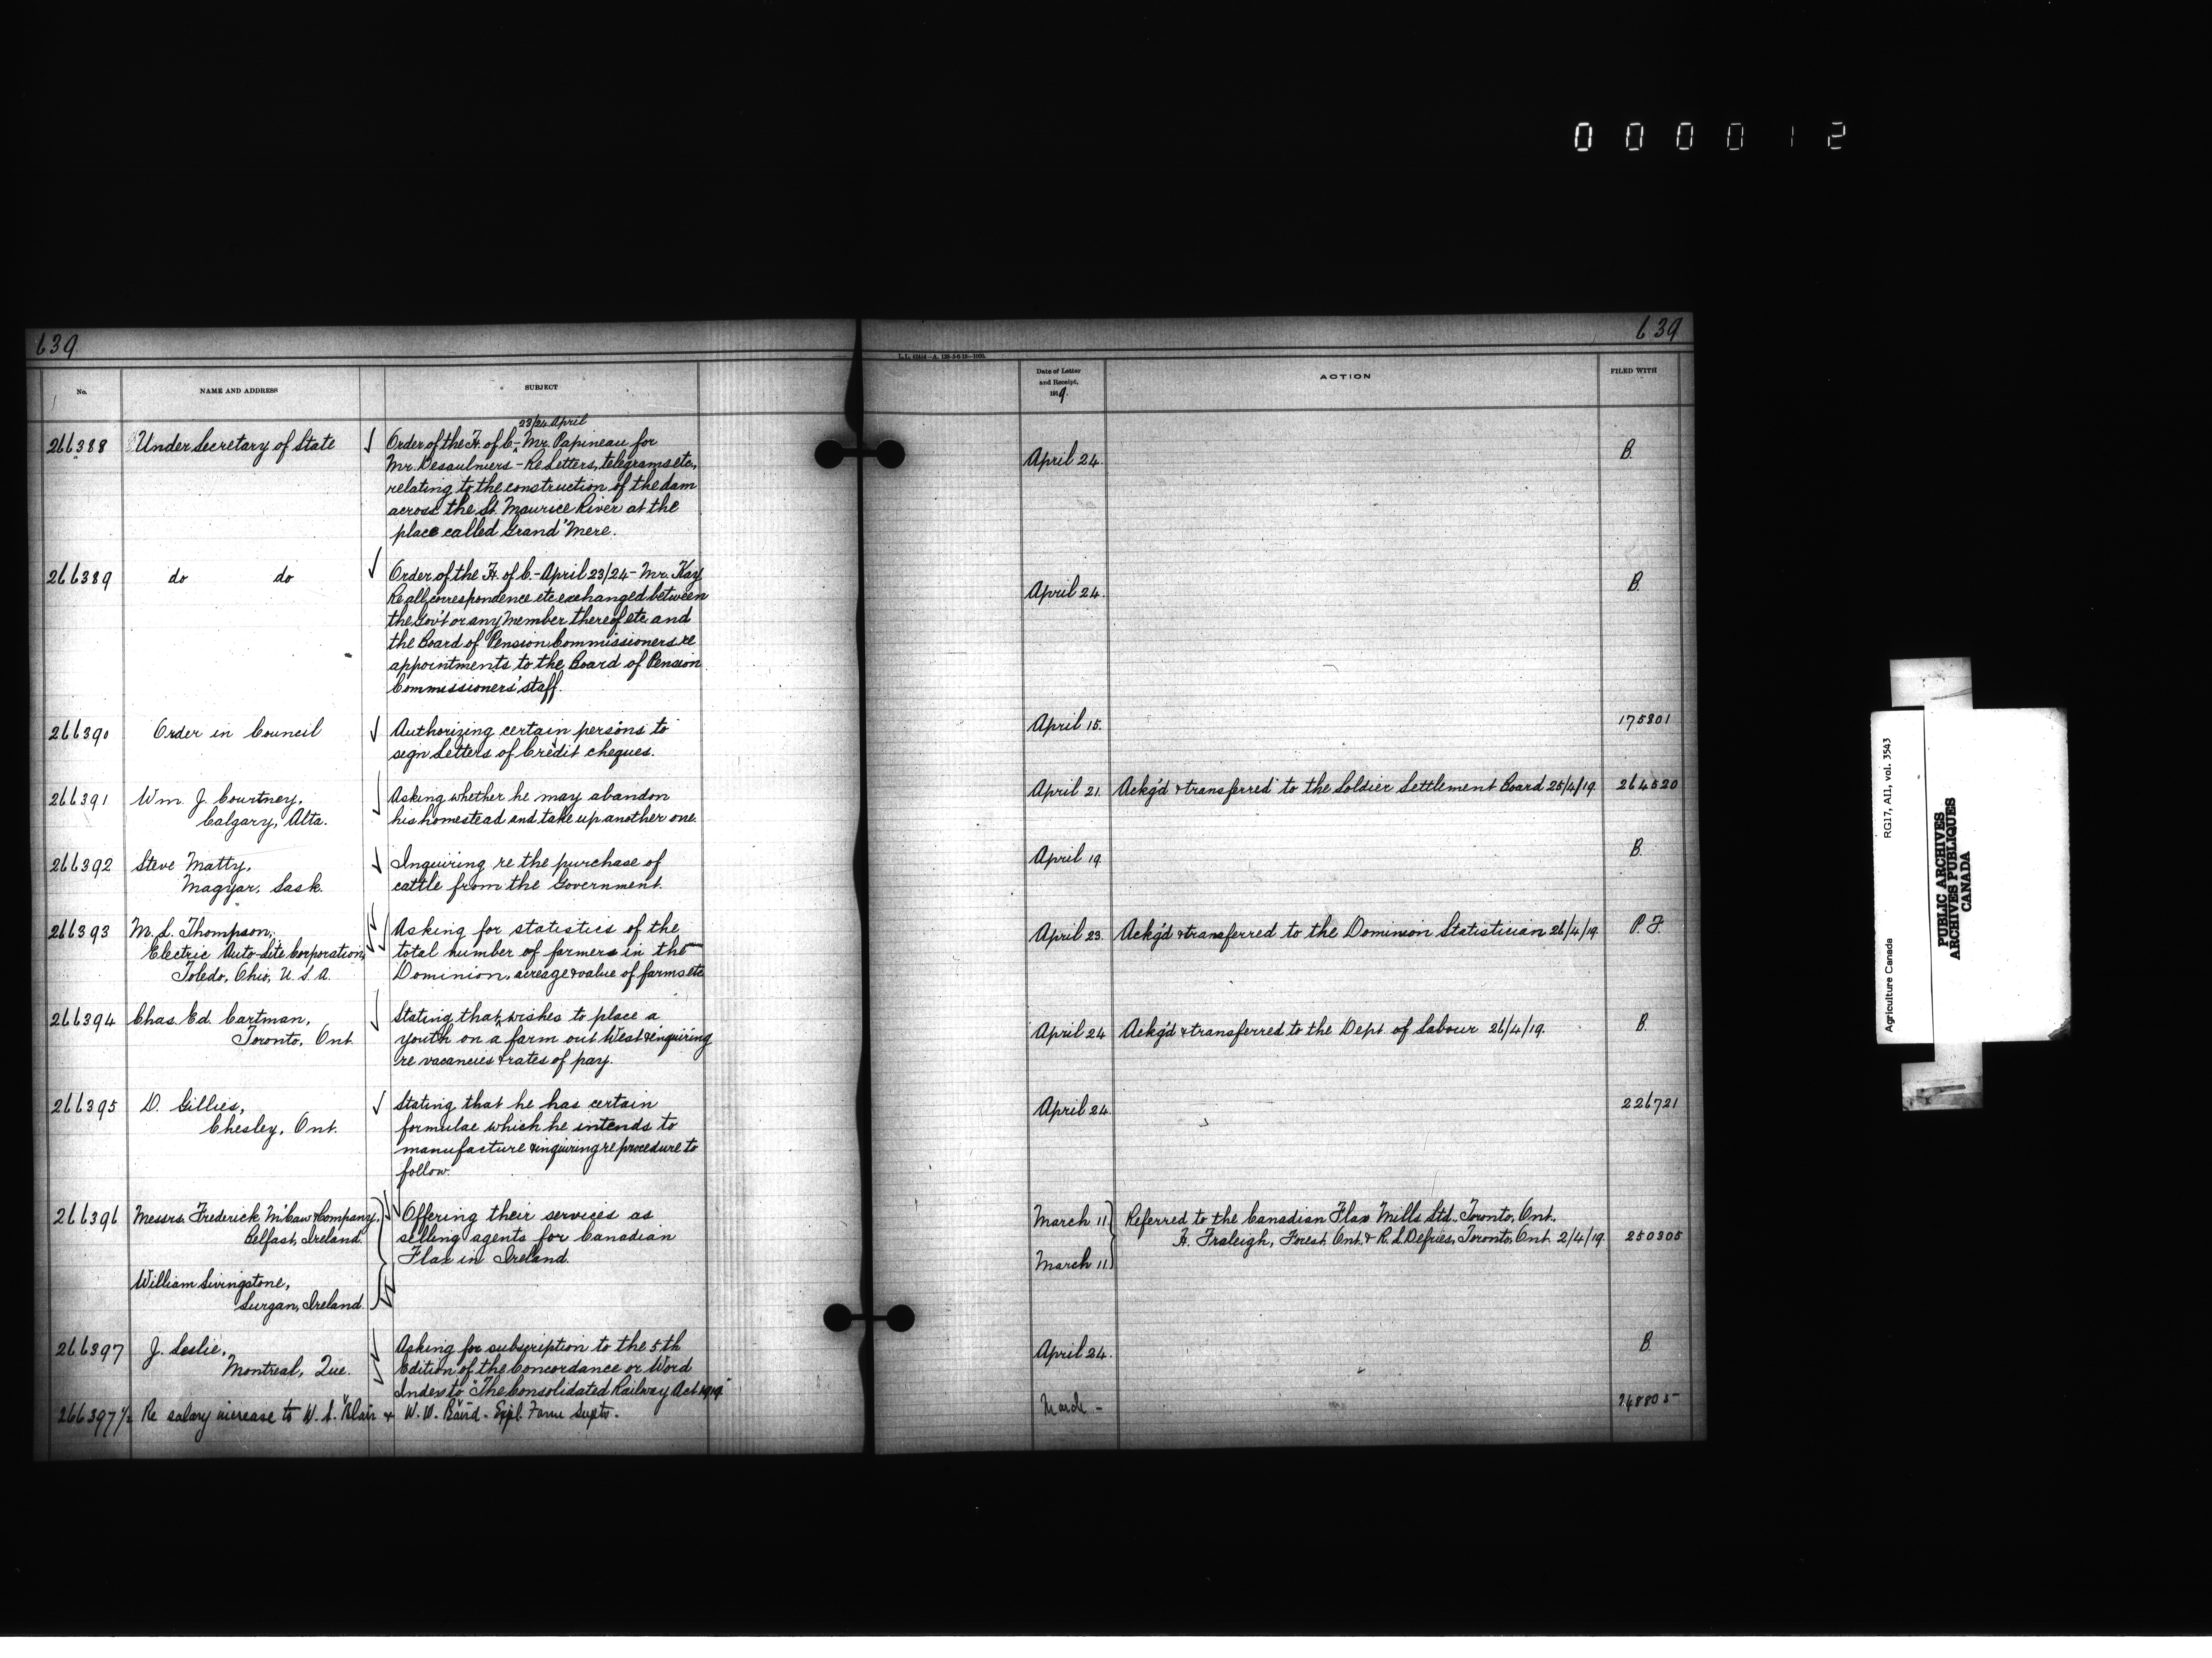 0 0 0 0 1 2
639
639
L.L. 42434—A. 128-5-6-18—1000.
No.
NAME AND ADDRESS
SUBJECT
Date of Letter
and Receipt,
1919.
ACTION
FILED WITH
23/24 April
266388 Under Secretary of State Order of the H. of C. - Mr. Papineau for
Mr. Desaulniers - Re Letters, telegrams etc., April 24. B.
relating to the construction of the dam
across the St. Maurice River at the
place called Grand'Mere.
266389 do do Order of the H. of C. - April 23/24 - Mr. Kay
Re all correspondence etc exchanged between April 24. B.
the Gov't or any Member thereof etc and
the Board of Pension Commissioners re
appointments to the Board of Pension
Commissioners' staff.
266390 Order in Council Authorizing certain persons to April 15. 175801
sign Letters of Credit cheques.
266391 Wm. J. Courtney, Asking whether he may abandon April 21. Ackg'd & transferred to the Soldier Settlement Board 25/4/19. 264520
Calgary, Alta. his homestead and take up another one.
266392 Steve Matty, Inquiring re the purchase of April 19 B.
Magyar, Sask. cattle from the Government.
266393 M. L. Thompson, Asking for statistics of the April 23. Ackg'd & transferred to the Dominion Statistician 26/4/19. P. F.
Electric Auto-Lite Corporation, total number of farmers in the
Toledo, Ohio, U. S. A. Dominion, acreage & value of farms etc
266394 Chas. Ed. Cartman, Stating that wishes to place a April 24 Ackg'd & transferred to the Dept. of Labour 26/4/19. B.
Toronto, Ont. youth on a farm out West & inquiring
re vacancies & rates of pay.
266395 D. Gillies, Stating that he has certain April 24. 226721
Chesley, Ont. formulae which he intends to
manufacture & inquiring re procedure to
follow.
266396 Messrs. Frederick McCaw & Company, Offering their services as March 11 Referred to the Canadian Flax Mills Ltd., Toronto, Ont.,
Belfast, Ireland. selling agents for Canadian H. Fraleigh, Forest, Ont. & R. L. Defries, Toronto, Ont. 2/4/19. 250305
Flax in Ireland. March 11.
William Livingstone,
Lurgan, Ireland.
266397 J. Leslie, Asking for subscription to the 5th April 24. B.
Montreal, Que. Edition of the Concordance or Word
Index to "The Consolidated Railway Act 1919."
266397½ Re salary increase to W. S. Blair & W. W. Baird. Expl. Farm Supts. March - 248805
Agriculture Canada RG17, AII, vol. 3543
PUBLIC ARCHIVES
ARCHIVES PUBLIQUES
CANADA